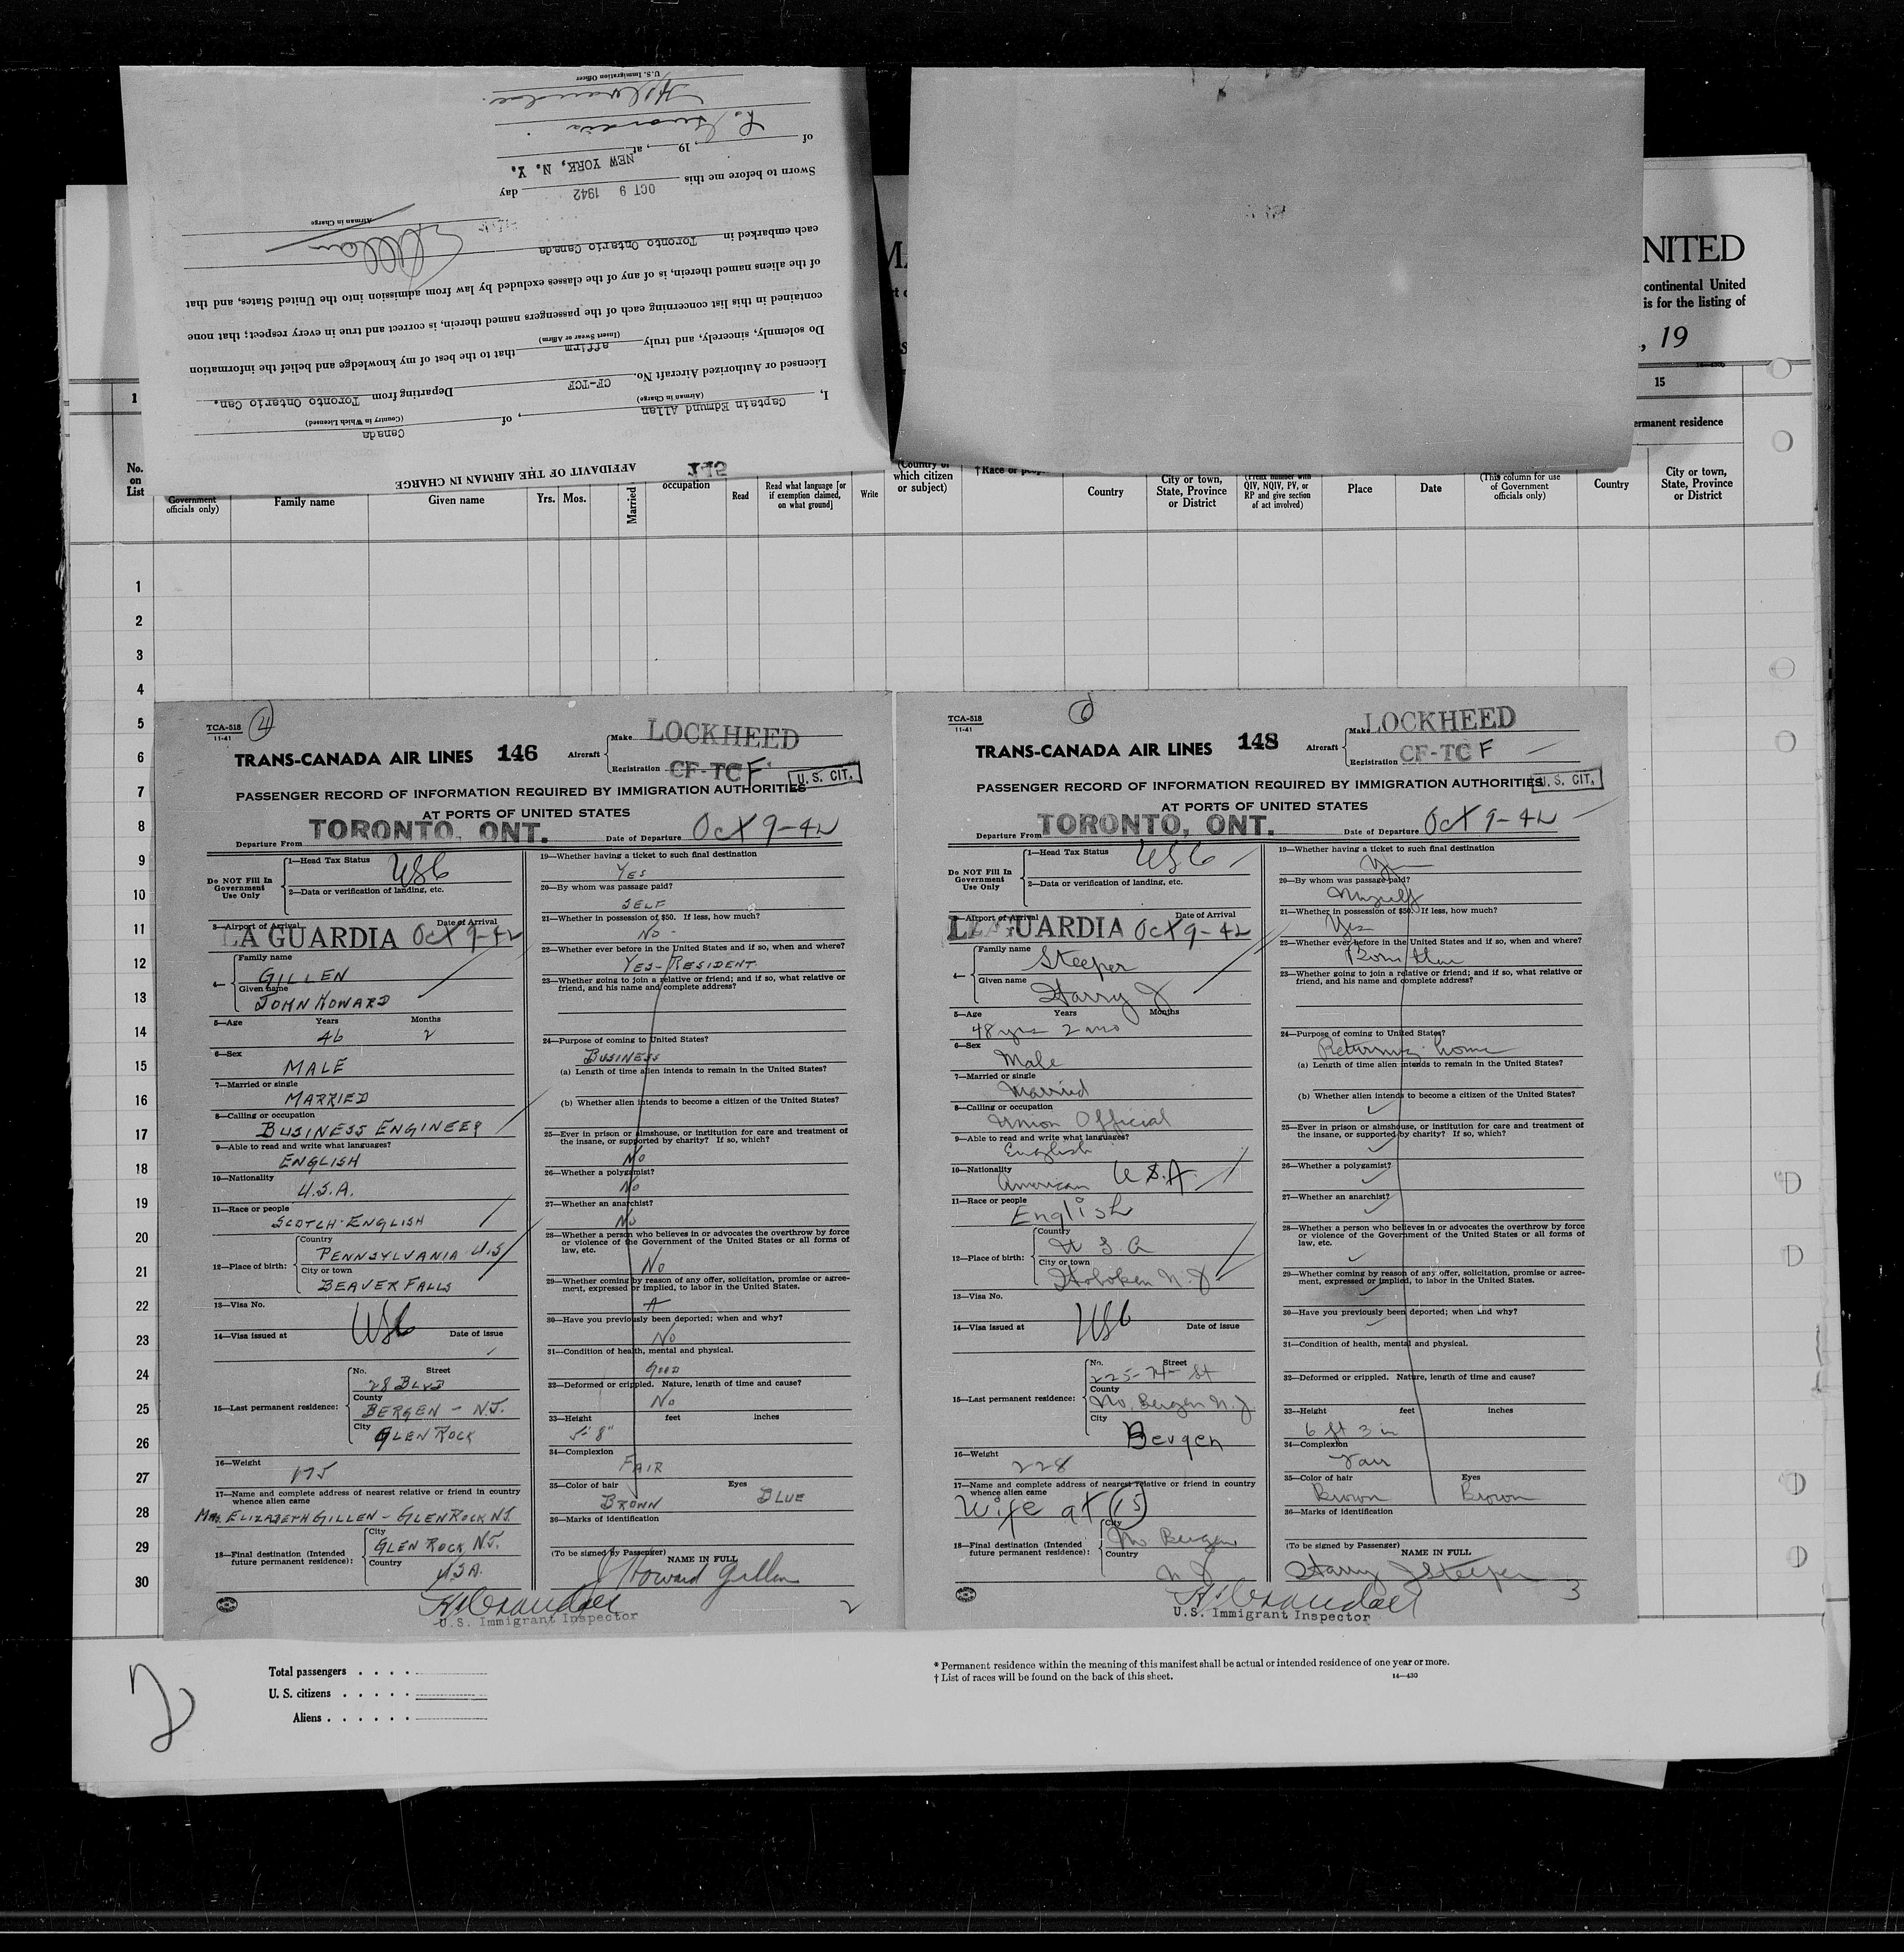 AFFIDAVIT OF THE AIRMAN IN CHARGE
I, Captain Edmund Allan, of Canada
(Airman in Charge) (Country in Which Licensed)
Licensed or Authorized Aircraft No. CF-TCF Departing from Toronto Ontario Can.
Do solemnly, sincerely, and truly affirm that to the best of my knowledge and belief the information
(Insert Swear or Affirm)
contained in this list concerning each of the passengers named therein, is correct and true in every respect; that none
of the aliens named therein, is of any of the classes excluded by law from admission into the United States, and that
each embarked in Toronto Ontario Canada
Airman in Charge
Sworn to before me this OCT 9 1942 day
of , 19 , at NEW YORK, N. Y.
La Guardia
U. S. Immigration Officer
NITED
continental United
is for the listing of
, 19
1
15
ermanent residence
No.
on
List
Government
officials only)
Family name
Given name
Yrs.
Mos.
Married
occupation
Read
Read what language [or
if exemption claimed,
on what ground]
Write
(Country of
which citizen
or subject)
† Race or
Country
City or town,
State, Province
or District
QIV, NQIV, PV, or
RP and give section
of act involved)
Place
Date
(This column for use
of Government
officials only)
Country
City or town,
State, Province
or District
1
2
3
4
5
6
7
8
9
10
11
12
13
14
15
16
17
18
19
20
21
22
23
24
25
26
27
28
29
30
TCA-518
11-41
4
TRANS-CANADA AIR LINES 146
Aircraft
Make LOCKHEED
Registration CF-TCF
U. S. CIT.
PASSENGER RECORD OF INFORMATION REQUIRED BY IMMIGRATION AUTHORITIES
AT PORTS OF UNITED STATES
Departure From TORONTO, ONT. Date of Departure Oct 9-42
Do NOT Fill In
Government
Use Only
1—Head Tax Status USC
2—Data or verification of landing, etc.
3—Airport of Arrival Date of Arrival
LA GUARDIA Oct 9-42
4—
Family name
GILLEN
Given name
JOHN HOWARD
5—Age Years Months
46 2
6—Sex
MALE
7—Married or single
MARRIED
8—Calling or occupation
BUSINESS ENGINEER
9—Able to read and write what languages?
ENGLISH
10—Nationality
U.S.A.
11—Race or people
SCOTCH-ENGLISH
12—Place of birth:
Country
PENNSYLVANIA U.S
City or town
BEAVER FALLS
13—Visa No.
USC
14—Visa issued at Date of issue
15—Last permanent residence:
No. Street
28 BLVD
County
BERGEN - N.J.
City
GLEN ROCK
16—Weight
175
17—Name and complete address of nearest relative or friend in country
whence alien came
Mrs. ELIZABETH GILLEN - GLEN ROCK NJ.
18—Final destination (Intended
future permanent residence):
City
GLEN ROCK, N.J.
Country
U.S.A.
19—Whether having a ticket to such final destination
YES
20—By whom was passage paid?
SELF
21—Whether in possession of $50. If less, how much?
NO -
22—Whether ever before in the United States and if so, when and where?
YES - RESIDENT
23—Whether going to join a relative or friend; and if so, what relative or
friend, and his name and complete address?
24—Purpose of coming to United States?
BUSINESS
(a) Length of time alien intends to remain in the United States?
(b) Whether alien intends to become a citizen of the United States?
25—Ever in prison or almshouse, or institution for care and treatment of
the insane, or supported by charity? If so, which?
NO
26—Whether a polygamist?
NO
27—Whether an anarchist?
NO
28—Whether a person who believes in or advocates the overthrow by force
or violence of the Government of the United States or all forms of
law, etc.
NO
29—Whether coming by reason of any offer, solicitation, promise or agree-
ment, expressed or implied, to labor in the United States.
30—Have you previously been deported; when and why?
NO
31—Condition of health, mental and physical.
GOOD
32—Deformed or crippled. Nature, length of time and cause?
NO
33—Height feet inches
5' 8"
34—Complexion
FAIR
35—Color of hair Eyes
BROWN BLUE
36—Marks of identification
(To be signed by Passenger) NAME IN FULL
J Howard Gillen
H. Crandall
U.S. Immigrant Inspector
2
TCA-518
11-41
6
TRANS-CANADA AIR LINES 148
Aircraft
Make LOCKHEED
Registration CF-TCF
U. S. CIT.
PASSENGER RECORD OF INFORMATION REQUIRED BY IMMIGRATION AUTHORITIES
AT PORTS OF UNITED STATES
Departure From TORONTO, ONT. Date of Departure Oct 9-42
Do NOT Fill In
Government
Use Only
1—Head Tax Status USC
2—Data or verification of landing, etc.
3—Airport of Arrival Date of Arrival
LA GUARDIA Oct 9-42
4—
Family name
Steeper
Given name
Harry J
5—Age Years Months
48 yrs 2 mo
6—Sex
Male
7—Married or single
Married
8—Calling or occupation
Union Official
9—Able to read and write what languages?
English
10—Nationality
American U.S.A.
11—Race or people
English
12—Place of birth:
Country
U S A
City or town
Hoboken N.J.
13—Visa No.
USC
14—Visa issued at Date of issue
15—Last permanent residence:
No. Street
225-74th St
County
No. Bergen N.J.
City
Bergen
16—Weight
228
17—Name and complete address of nearest relative or friend in country
whence alien came
Wife at (15)
18—Final destination (Intended
future permanent residence):
City
No Bergen
Country
N J
19—Whether having a ticket to such final destination
Yes
20—By whom was passage paid?
Myself
21—Whether in possession of $50. If less, how much?
Yes
22—Whether ever before in the United States and if so, when and where?
Born
23—Whether going to join a relative or friend; and if so, what relative or
friend, and his name and complete address?
24—Purpose of coming to United States?
Returning home
(a) Length of time alien intends to remain in the United States?
(b) Whether alien intends to become a citizen of the United States?
25—Ever in prison or almshouse, or institution for care and treatment of
the insane, or supported by charity? If so, which?
26—Whether a polygamist?
27—Whether an anarchist?
28—Whether a person who believes in or advocates the overthrow by force
or violence of the Government of the United States or all forms of
law, etc.
29—Whether coming by reason of any offer, solicitation, promise or agree-
ment, expressed or implied, to labor in the United States.
30—Have you previously been deported; when and why?
31—Condition of health, mental and physical.
32—Deformed or crippled. Nature, length of time and cause?
33—Height feet inches
6 ft 3 in
34—Complexion
Fair
35—Color of hair Eyes
Brown Brown
36—Marks of identification
(To be signed by Passenger) NAME IN FULL
Harry J Steeper
H. Crandall
U.S. Immigrant Inspector
3
Total passengers . . . .
U. S. citizens . . . . .
Aliens . . . . . .
* Permanent residence within the meaning of this manifest shall be actual or intended residence of one year or more.
† List of races will be found on the back of this sheet.
14—430
2